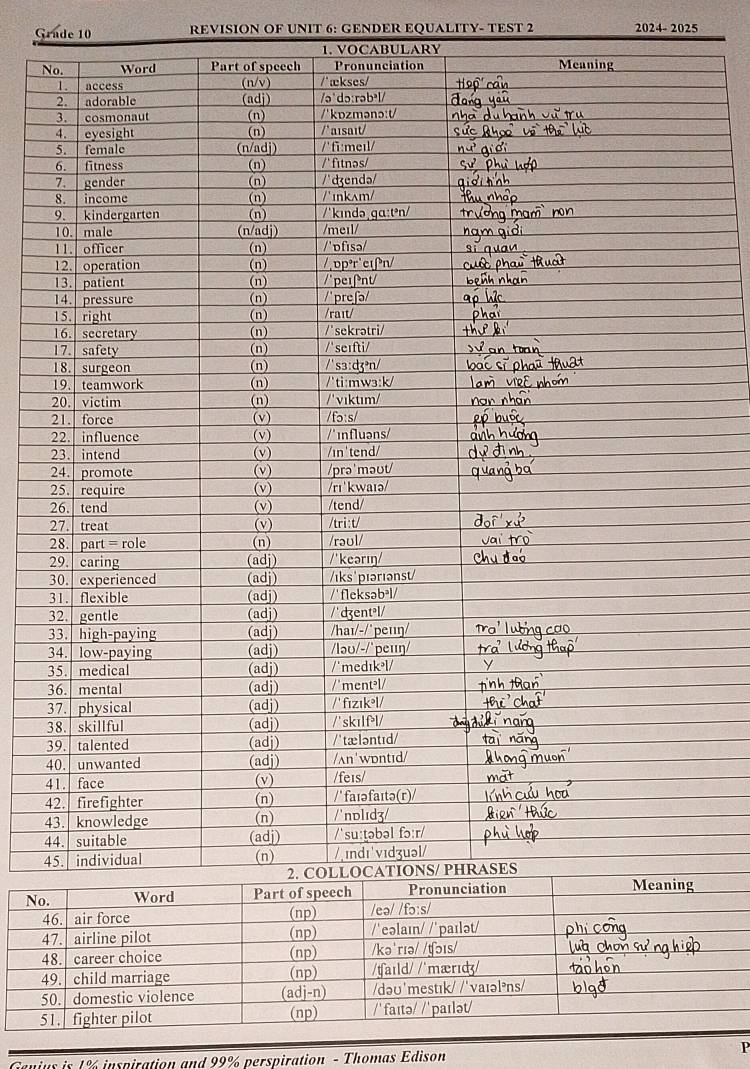 Grade 10 REVISION OF UNIT 6: GENDER EQUALITY- TEST 2 2024- 2025
1. VOCABULARY
No. Word Part of speech Pronunciation Meaning
1. access (n/v) /ˈækses/ tiếp cận
2. adorable (adj) /əˈdɔːrəbᵊl/ đáng yêu
3. cosmonaut (n) /ˈkɒzmənɔːt/ nhà du hành vũ trụ
4. eyesight (n) /ˈaɪsaɪt/ sức khoẻ về thể lực
5. female (n/adj) /ˈfiːmeɪl/ nữ giới
6. fitness (n) /ˈfɪtnəs/ sự phù hợp
7. gender (n) /ˈdʒendə/ giới tính
8. income (n) /ˈɪnkʌm/ thu nhập
9. kindergarten (n) /ˈkɪndəˌɡɑːtᵊn/ trường mầm non
10. male (n/adj) /meɪl/ nam giới
11. officer (n) /ˈɒfɪsə/ sĩ quan
12. operation (n) /ˌɒpᵊrˈeɪʃᵊn/ cuộc phẫu thuật
13. patient (n) /ˈpeɪʃᵊnt/ bệnh nhân
14. pressure (n) /ˈpreʃə/ áp lực
15. right (n) /raɪt/ phải
16. secretary (n) /ˈsekrətri/ thư kí
17. safety (n) /ˈseɪfti/ sự an toàn
18. surgeon (n) /ˈsɜːdʒᵊn/ bác sĩ phẫu thuật
19. teamwork (n) /ˈtiːmwɜːk/ làm việc nhóm
20. victim (n) /ˈvɪktɪm/ nạn nhân
21. force (v) /fɔːs/ ép buộc
22. influence (v) /ˈɪnfluəns/ ảnh hưởng
23. intend (v) /ɪnˈtend/ dự định
24. promote (v) /prəˈməʊt/ quảng bá
25. require (v) /rɪˈkwaɪə/
26. tend (v) /tend/
27. treat (v) /triːt/ đối xử
28. part = role (n) /rəʊl/ vai trò
29. caring (adj) /ˈkeərɪŋ/ chu đáo
30. experienced (adj) /ɪksˈpɪərɪənst/
31. flexible (adj) /ˈfleksəbᵊl/
32. gentle (adj) /ˈdʒentᵊl/
33. high-paying (adj) /haɪ/-/ˈpeɪɪŋ/ trả lương cao
34. low-paying (adj) /ləʊ/-/ˈpeɪɪŋ/ trả lương thấp
35. medical (adj) /ˈmedɪkᵊl/ Y
36. mental (adj) /ˈmentᵊl/ tinh thần
37. physical (adj) /ˈfɪzɪkᵊl/ thể chất
38. skillful (adj) /ˈskɪlfᵊl/ kĩ năng
39. talented (adj) /ˈtæləntɪd/ tài năng
40. unwanted (adj) /ʌnˈwɒntɪd/ không muốn
41. face (v) /feɪs/ mặt
42. firefighter (n) /ˈfaɪəfaɪtə(r)/ lính cứu hoả
43. knowledge (n) /ˈnɒlɪdʒ/ kiến thức
44. suitable (adj) /ˈsuːtəbəl fɔːr/ phù hợp
45. individual (n) /ˌɪndɪˈvɪdʒuəl/
2. COLLOCATIONS/ PHRASES
No. Word Part of speech Pronunciation Meaning
46. air force (np) /eə/ /fɔːs/
47. airline pilot (np) /ˈeəlaɪn/ /ˈpaɪlət/ phi công
48. career choice (np) /kəˈrɪə/ /tʃɔɪs/ lựa chọn sự nghiệp
49. child marriage (np) /tʃaɪld/ /ˈmærɪdʒ/ tảo hôn
50. domestic violence (adj-n) /dəʊˈmestɪk/ /ˈvaɪəlᵊns/ blgđ
51. fighter pilot (np) /ˈfaɪtə/ /ˈpaɪlət/
P
Genius is 1% inspiration and 99% perspiration - Thomas Edison